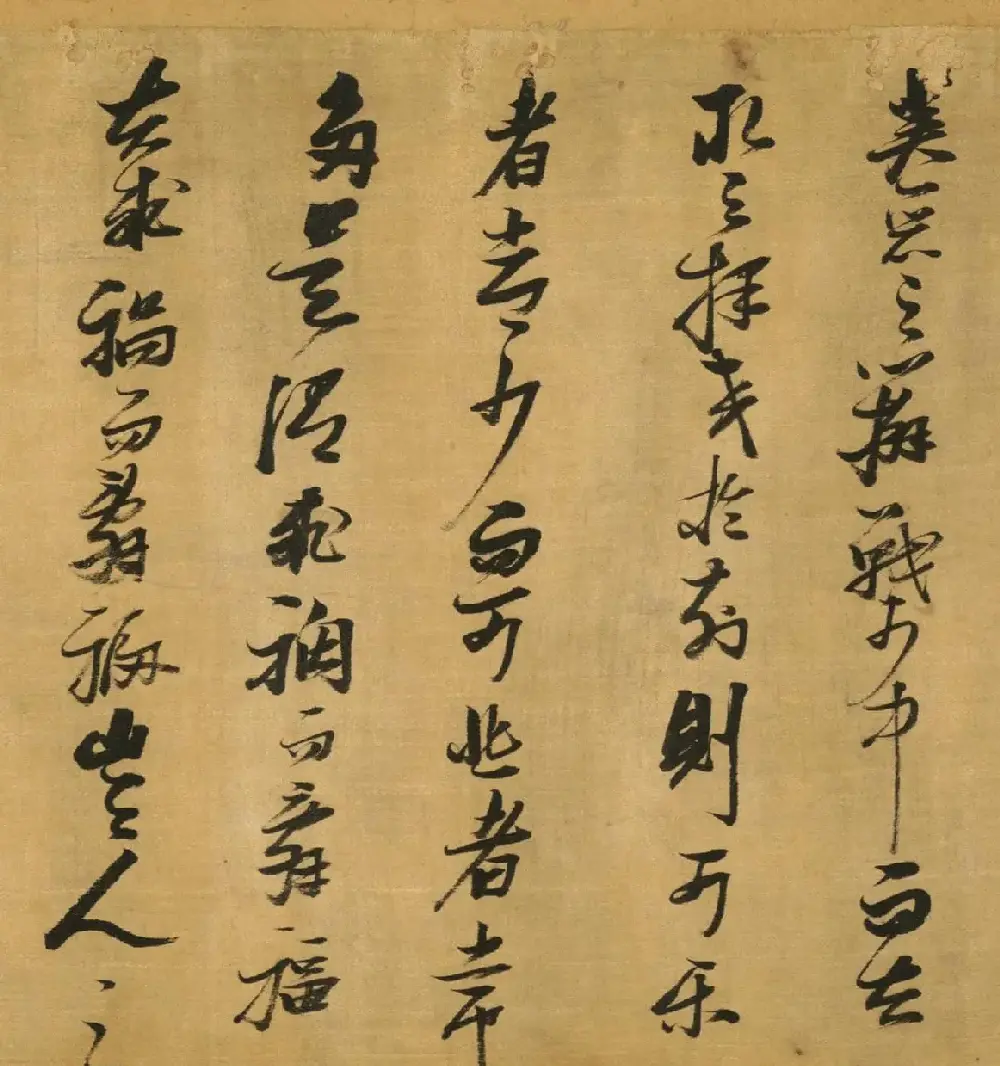 美惡之辨戰乎中而去
取之擇交於前則可樂
者常少而可悲者常
多是謂求禍而辭福
夫求禍而辭福豈人之